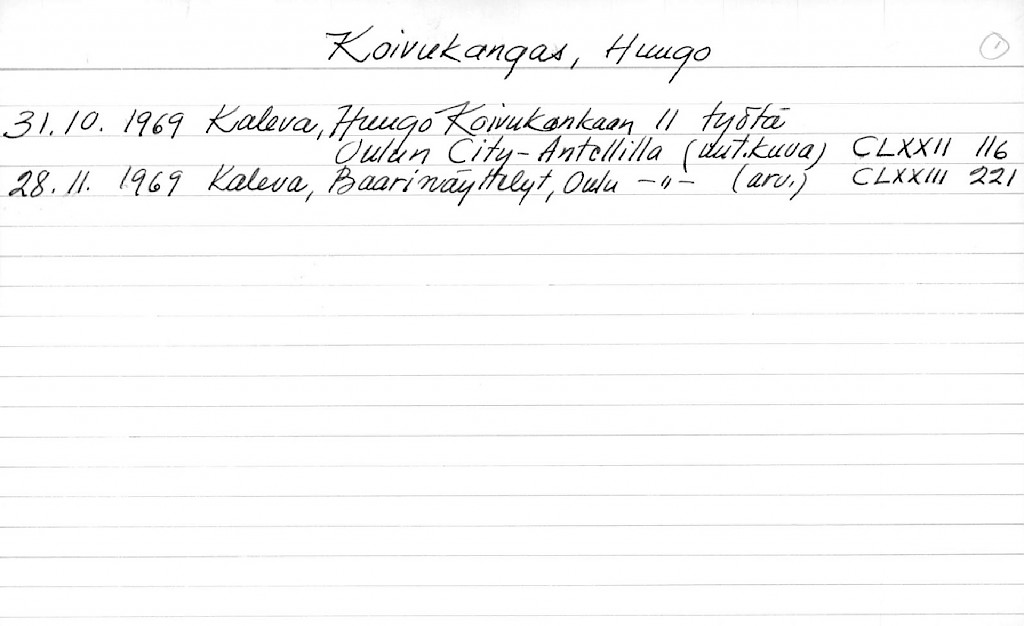 Koivukangas, Huugo 1
31.10. 1969 Kaleva, Huugo Koivukankaan 11 työtä
Oulun City-Antellilla (uut.kuva) CLXXII 116
28.11. 1969 Kaleva, Baarinäyttelyt, Oulu -"- (arv.) CLXXIII 221